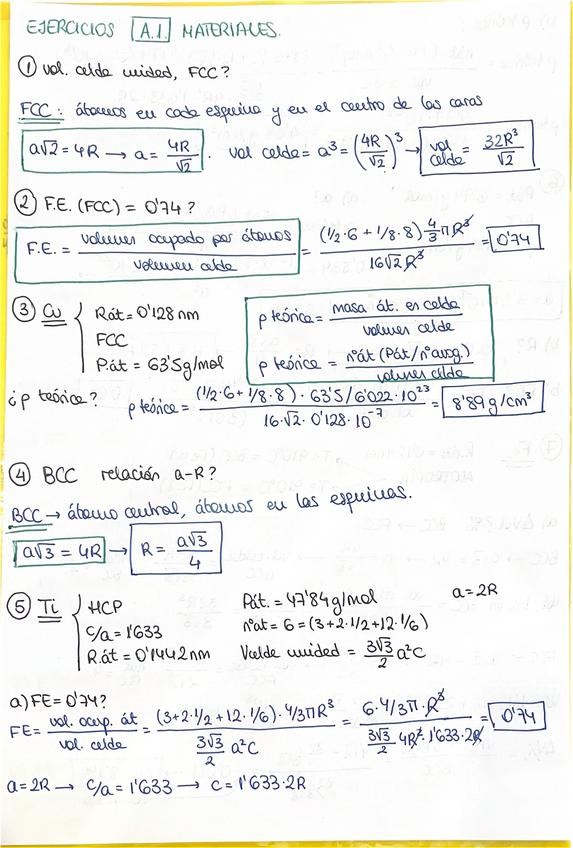 EJERCICIOS A.1. MATERIALES.
① vol. celde unided, FCC?
FCC: átomos en cada esquina y en el centro de las caras
a√2 = 4R → a = 4R/√2 . vol celda = a³ = (4R/√2)³ → vol celde = 32R³/√2
② F.E. (FCC) = 0'74?
F.E. = volumen ocupado por átomos / volumen celda = (1/2·6 + 1/8·8) 4/3 π R³ / 16√2 R³ = 0'74
③ Cu { R.át = 0'128 nm
FCC
P.át = 63'5 g/mol
ρ teórica = masa át. en celda / volumen celda
ρ teórica = nº át (Pát/nº avog.) / volumen celda
¿ρ teórica? ρ teórica = (1/2·6 + 1/8·8) · 63'5/6'022·10²³ / 16·√2·0'128·10⁻⁷ = 8'89 g/cm³
④ BCC relación a-R?
BCC → átomo central, átomos en las esquinas.
a√3 = 4R → R = a√3/4
⑤ Ti { HCP
c/a = 1'633
R.át = 0'1442 nm
Pát. = 47'84 g/mol
nºat = 6 = (3+2·1/2+12·1/6)
Vcelde unided = 3√3/2 a²C
a = 2R
a) FE = 0'74?
FE = vol. ocup. át / vol. celde = (3+2·1/2 + 12·1/6)·4/3πR³ / 3√3/2 a²C = 6·4/3π·R³ / 3√3/2 4R²·1'633·2R = 0'74
a = 2R → c/a = 1'633 → c = 1'633·2R